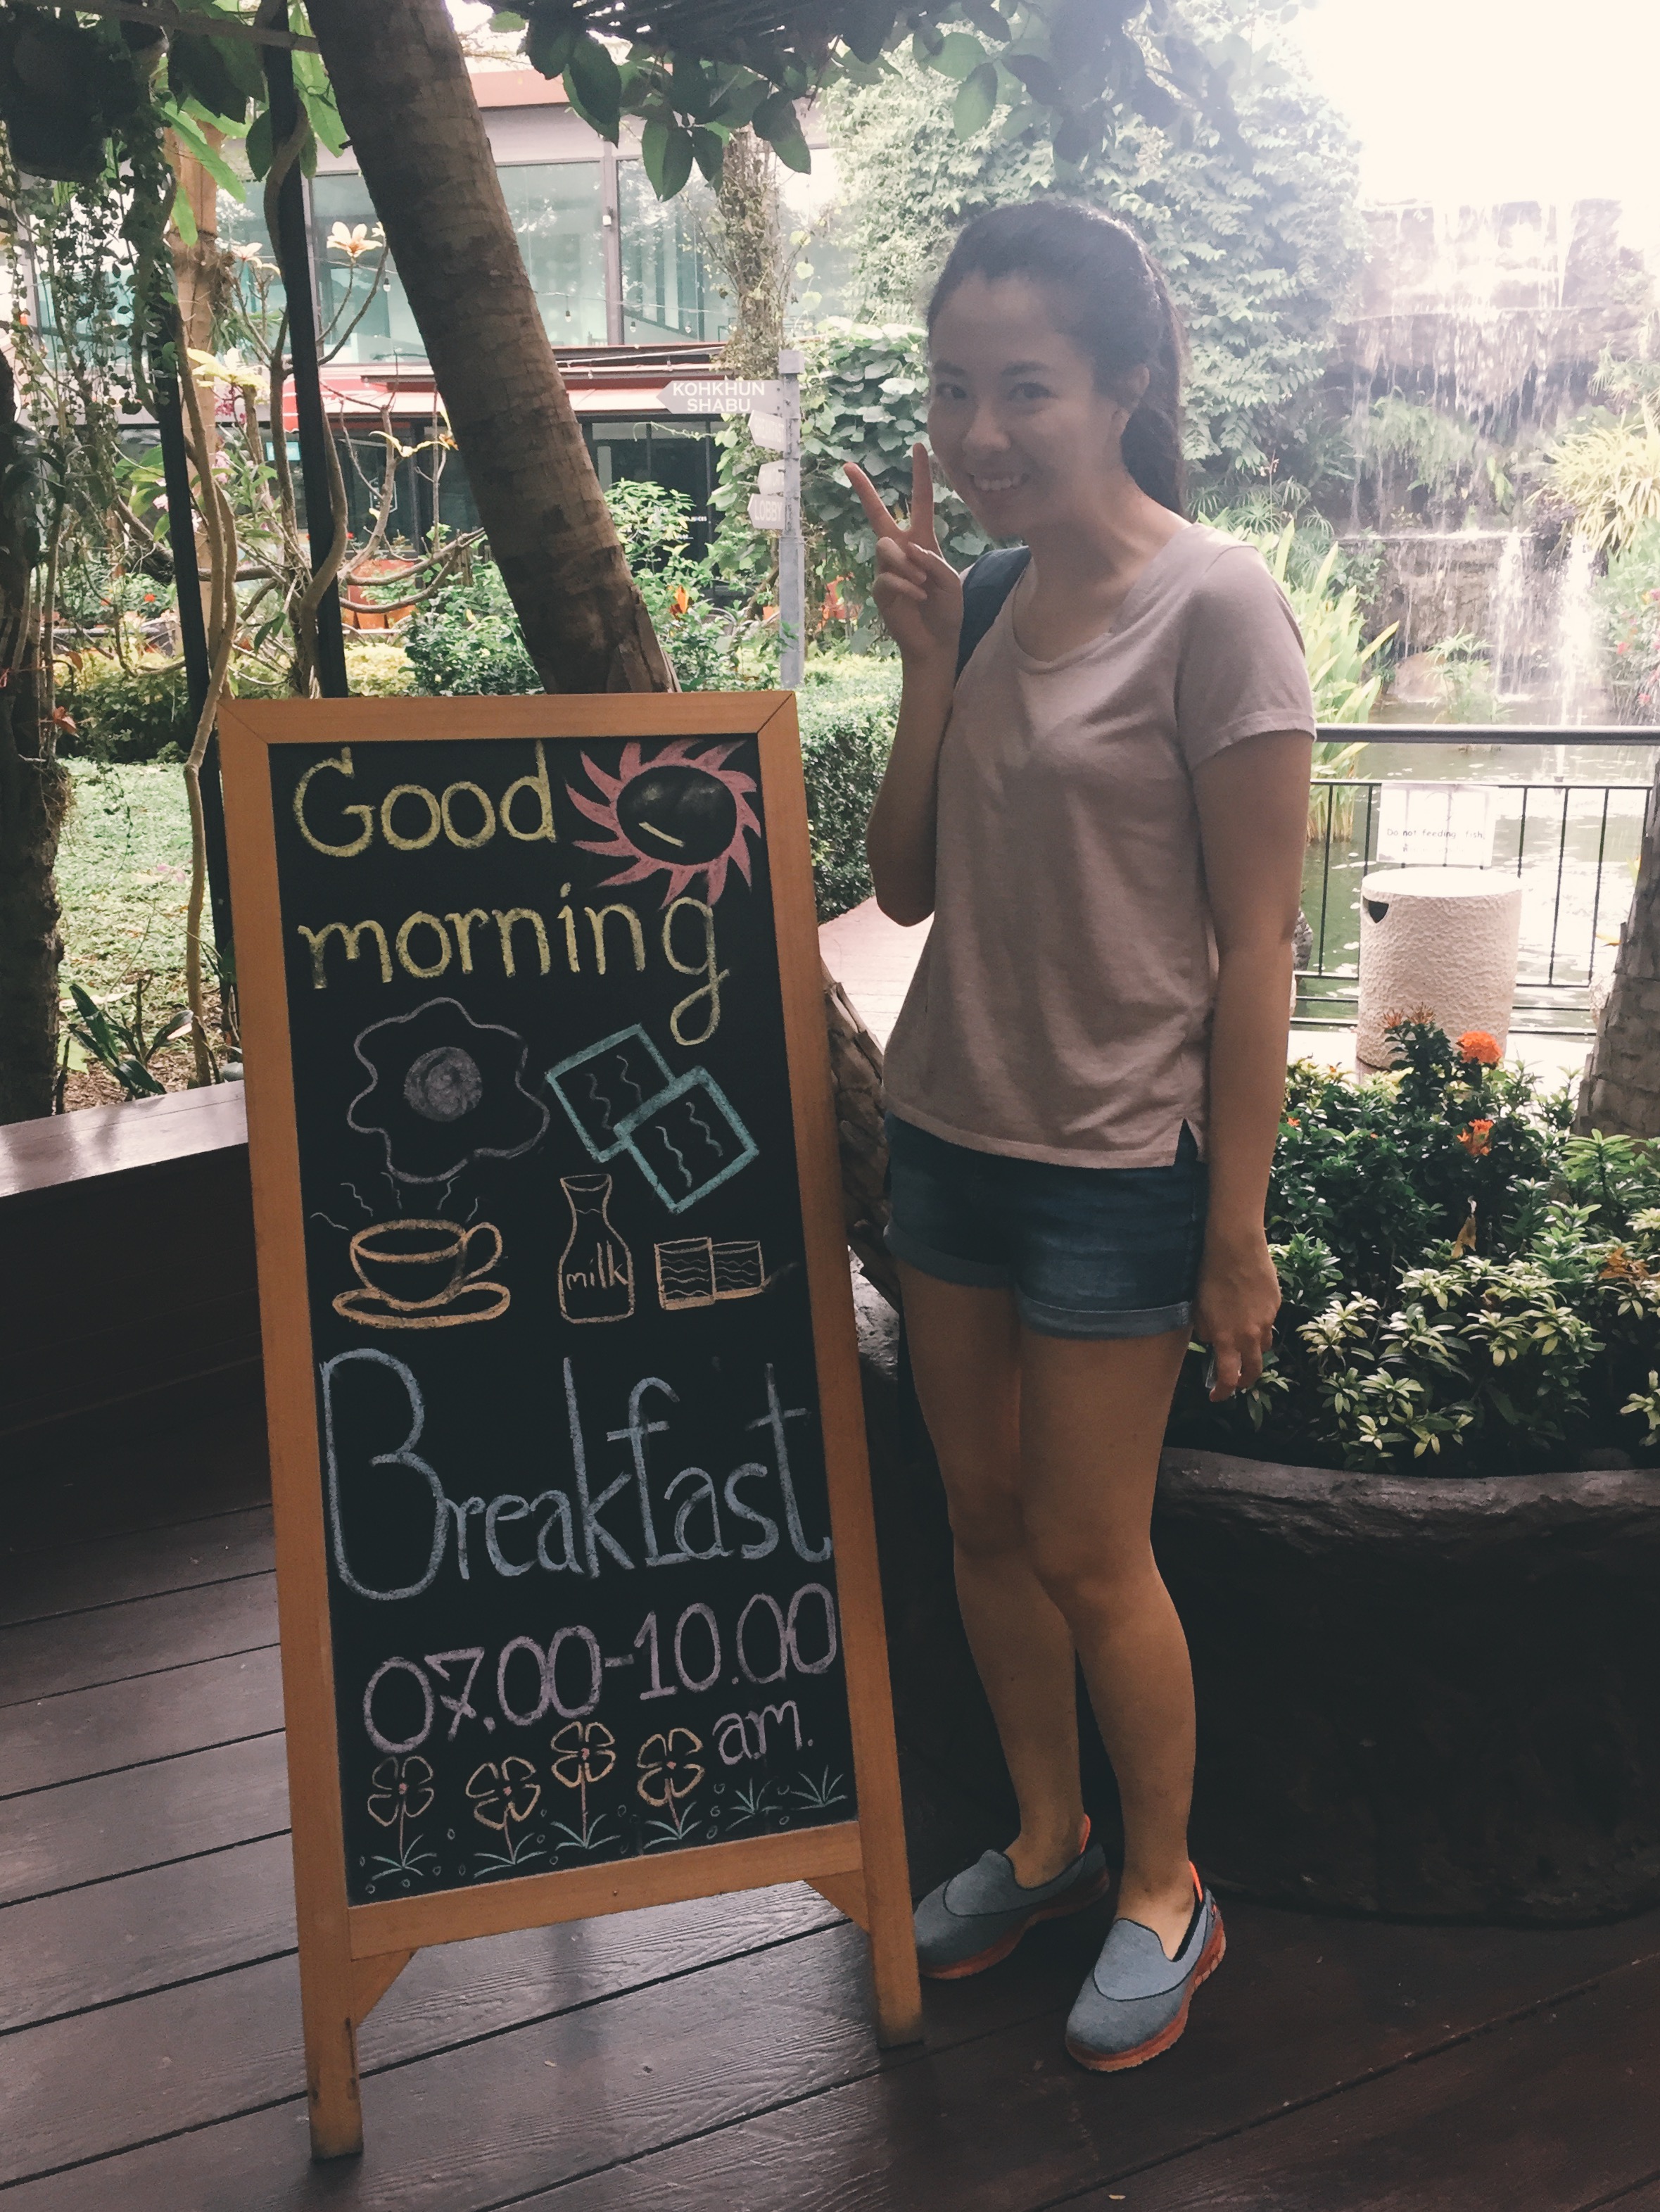 KOHKHUN
SHABU
LOBBY
Do not feeding fish
Good
morning
milk
Breakfast
07.00-10.00
a.m.